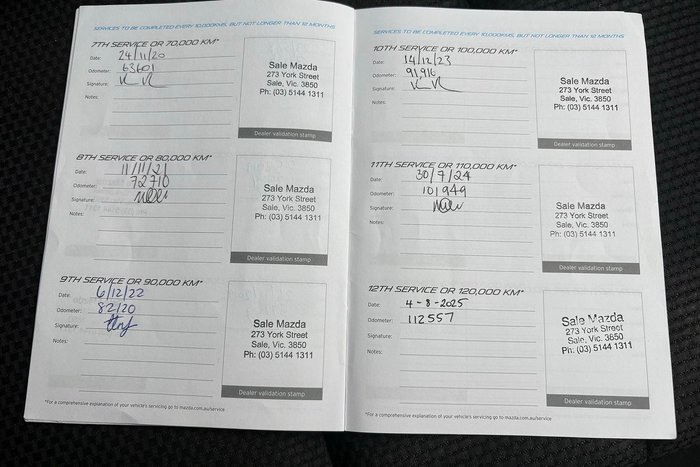 SERVICES TO BE COMPLETED EVERY 10,000KMS, BUT NOT LONGER THAN 12 MONTHS
7TH SERVICE OR 70,000 KM*
Date: 24/11/20
Odometer: 63601
Signature:
Notes:
Sale Mazda
273 York Street
Sale, Vic. 3850
Ph: (03) 5144 1311
Dealer validation stamp
8TH SERVICE OR 80,000 KM*
Date: 11/11/21
Odometer: 72710
Signature:
Notes:
Sale Mazda
273 York Street
Sale, Vic. 3850
Ph: (03) 5144 1311
Dealer validation stamp
9TH SERVICE OR 90,000 KM*
Date: 6/12/22
Odometer: 82120
Signature:
Notes:
Sale Mazda
273 York Street
Sale, Vic. 3850
Ph: (03) 5144 1311
Dealer validation stamp
*For a comprehensive explanation of your vehicle's servicing go to mazda.com.au/service
SERVICES TO BE COMPLETED EVERY 10,000KMS, BUT NOT LONGER THAN 12 MONTHS
10TH SERVICE OR 100,000 KM*
Date: 14/12/23
Odometer: 91916
Signature:
Notes:
Sale Mazda
273 York Street
Sale, Vic. 3850
Ph: (03) 5144 1311
Dealer validation stamp
11TH SERVICE OR 110,000 KM*
Date: 30/7/24
Odometer: 101949
Signature:
Notes:
Sale Mazda
273 York Street
Sale, Vic. 3850
Ph: (03) 5144 1311
Dealer validation stamp
12TH SERVICE OR 120,000 KM*
Date: 4-8-2025
Odometer: 112557
Signature:
Notes:
Sale Mazda
273 York Street
Sale, Vic. 3850
Ph: (03) 5144 1311
Dealer validation stamp
*For a comprehensive explanation of your vehicle's servicing go to mazda.com.au/service